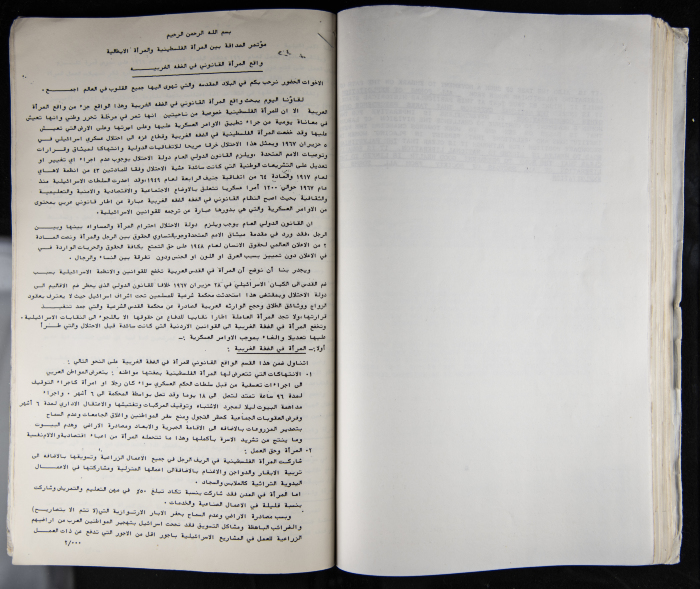 بسم الله الرحمن الرحيم
مؤتمر الصداقة بين المرأة الفلسطينية والمرأة الايطالية
واقع المرأة القانوني في الضفة الغربيــه
الاخوات الحضور نرحب بكم في البلاد المقدسه والتي تهوى اليها جميع القلوب في العالم اجمـــع .
لقاؤنا اليوم يبحث واقع المرأة القانوني في الضفة الغربية وهذا الواقع جزء من واقع المرأة
العربية الا ان للمرأة الفلسطينية خصوصية من ناحيتين انها تمر في مرحلة تحرر وطني وانها تعيش
في معاناة يومية من جراء تطبيق الاوامر العسكرية عليها وعلى اسرتها وعلى الارض التي تعيـــش
عليها وقد خضعت المرأة الفلسطينية في الضفة الغربية وقطاع غزه الى احتلال عسكري اسرائيلي فـي
٥ حزيران ١٩٦٧ ويمثل هذا الاحتلال خرقا صريحا للاتفاقيات الدولية وانتهاكا لميثاق وقــرارات
وتوصيات الامم المتحدة ،ويلزم القانون الدولي العام دولة الاحتلال بوجوب عدم اجراء اي تغيير او
تعديل على التشريعات الوطنية التي كانت سائدة عشية الاحتلال وفقا للمادتين ٤٣ من انظمة لاهــاي
لعام ١٩١٧ والمادة ٦٤ من اتفاقية جنيف الرابعة لعام ١٩٤٩،وقد اصدرت السلطات الاسرائيلية منـذ
عام ١٩٦٧ حوالي ١٢٠٠ أمرا عسكريا تتعلق بالاوضاع الاجتماعية والاقتصادية والامنية والتعليميـة
والثقافية بحيث اصبح النظام القانوني في الضفة الغربية عبارة عن اطار قانوني عربي بمحتوى
من الاوامر العسكرية والتي هي بدورها عبارة عن ترجمه للقوانين الاسرائيلية .
ان القانون الدولي العام يوجب ويلزم دولة الاحتلال احترام المرأة والمساواه بينها وبيـــن
الرجل ،فقد ورد في مقدمة ميثاق الامم المتحدة وجوب تساوي الحقوق بين الرجل والمرأة ونصت المـادة
٢ من الاعلان العالمي لحقوق الانسان لعام ١٩٤٨ على حق التمتع بكافة الحقوق والحريات الواردة فـي
في الاعلان دون تمييز بسبب العرق او اللون او الجنس ودون تفرقة بين النساء والرجال .
ويجدر بنا أن نوضح أن المرأة في القدس العربية تخضع للقوانين والانظمة الاسرائيلية بسبــب
ضم القدس الى الكيان الاسرائيلي في ٢٨ حزيران ١٩٦٧ خلافا للقانون الدولي الذي يحظر ضم الاقاليم الى
دولة الاحتلال وبمقتضى هذا استحدثت محكمة شرعية للمسلمين تحت اشراف اسرائيل حيث لا يعترف بعقود
الزواج ووثائق الطلاق وحجج الوراثه العربية الصادرة عن محكمة القدس الشرعية والتي عمد تنفيــذ
قراراتها،ولا تجد المرأة العاملة اطارا نقابيا للدفاع عن حقوقها الا باللجوء الى النقابات الاسرائيلية .
وتخضع المرأة في الضفة الغربية الى القوانين الاردنية التي كانت سائدة قبل الاحتلال والتي طــرأ
عليها تعديلا والغاء بموجب الاوامر العسكرية :ـ
أولا:ـ المرأة في الضفة الغربية :
اتناول ضمن هذا القسم الواقع القانوني للمرأة في الضفة الغربية على النحو التالي :
١- الانتهاكات التي تتعرض لها المرأة الفلسطينية بصفتها مواطنه : يتعرض المواطن العربي
الى اجراءات تعسفية من قبل سلطات الحكم العسكري سواء كان رجلا او امرأة كاجراء التوقيف
لمدة ٩٦ ساعة تمتد لتصل الى ١٨ يوما وقد تصل بواسطة المحكمة الى ٦ اشهر ، واجراء
مداهمة البيوت ليلا لمجرد الاشتباه وتوقيف المركبات وتفتيشها والاعتقال الاداري لمدة ٦ أشهر
وفرض العقوبات الجماعية كحظر التجول ومنع سفر المواطنين واغلاق الجامعات وعدم السماح
بتصدير المزروعات بالاضافة الى الاقامة الجبرية والابعاد ومصادرة الاراضي وهدم البيــوت
وما ينتج من تشريد الاسرة بأكملها وهذا ما تتحمله المرأة من أعباء اقتصادية والانفسية
٢- المرأة وحق العمل :
شاركت المرأة الفلسطينية في الريف الرجل في جميع الاعمال الزراعية وتسويقها بالاضافه الى
تربية الابقار والدواجن والاغنام بالاضافة الى اعمالها المنزلية ومشاركتها في الاعمــال
اليدوية التراثية كالملابس والسجاد .
اما المرأة في المدن فقد شاركت بنسبة تكاد تبلغ ٥٠٪ في مهن التعليم والتمريض وشاركت
بنسبة قليلة في الاعمال الصناعية والخدمات .
وبسبب مصادرة الاراضي وعدم السماح بحفر الابار الارتوازية التي(لا تتم الا بتصاريح)
والضرائب الباهظة ومشاكل التسويق فقد نجحت اسرائيل بتهجير المواطنين العرب من اراضيهم
الزراعية للعمل في المشاريع الاسرائيلية باجور اقل من الاجور التي تدفع عن ذات العمــل
٢/٠٠٠